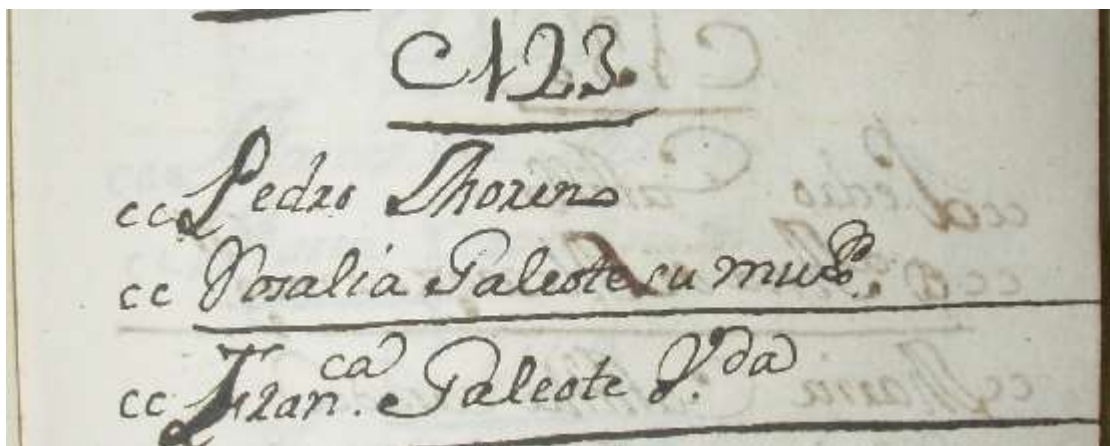 N 23.
cc Pedro Thoreno
cc Rosalia Galeote su mug.r
cc Fran.ca Galeote V.da